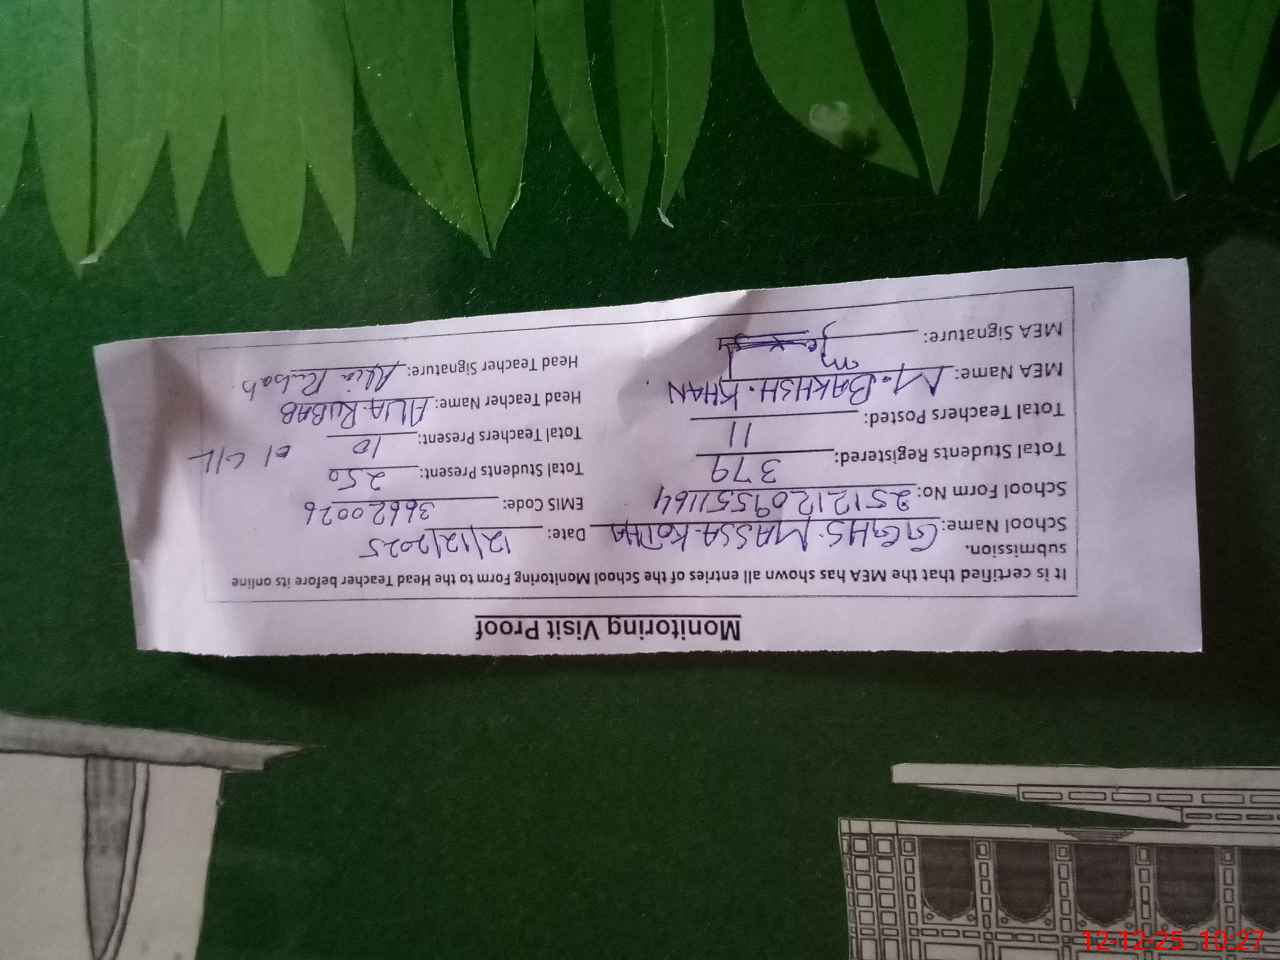 Monitoring Visit Proof
It is certified that the MEA has shown all entries of the School Monitoring Form to the Head Teacher before its online
submission.
School Name: GGHS. MASSA. KOTHA Date: 12/12/2025
School Form No: 25121209551164 EMIS Code: 36620026
Total Students Registered: 379 Total Students Present: 250
Total Teachers Posted: 11 Total Teachers Present: 10 01 C/L
MEA Name: M. BAKHSH. KHAN Head Teacher Name: ALIA. RUBAB
MEA Signature: Head Teacher Signature: Alia Rubab
12-12-25 10:27